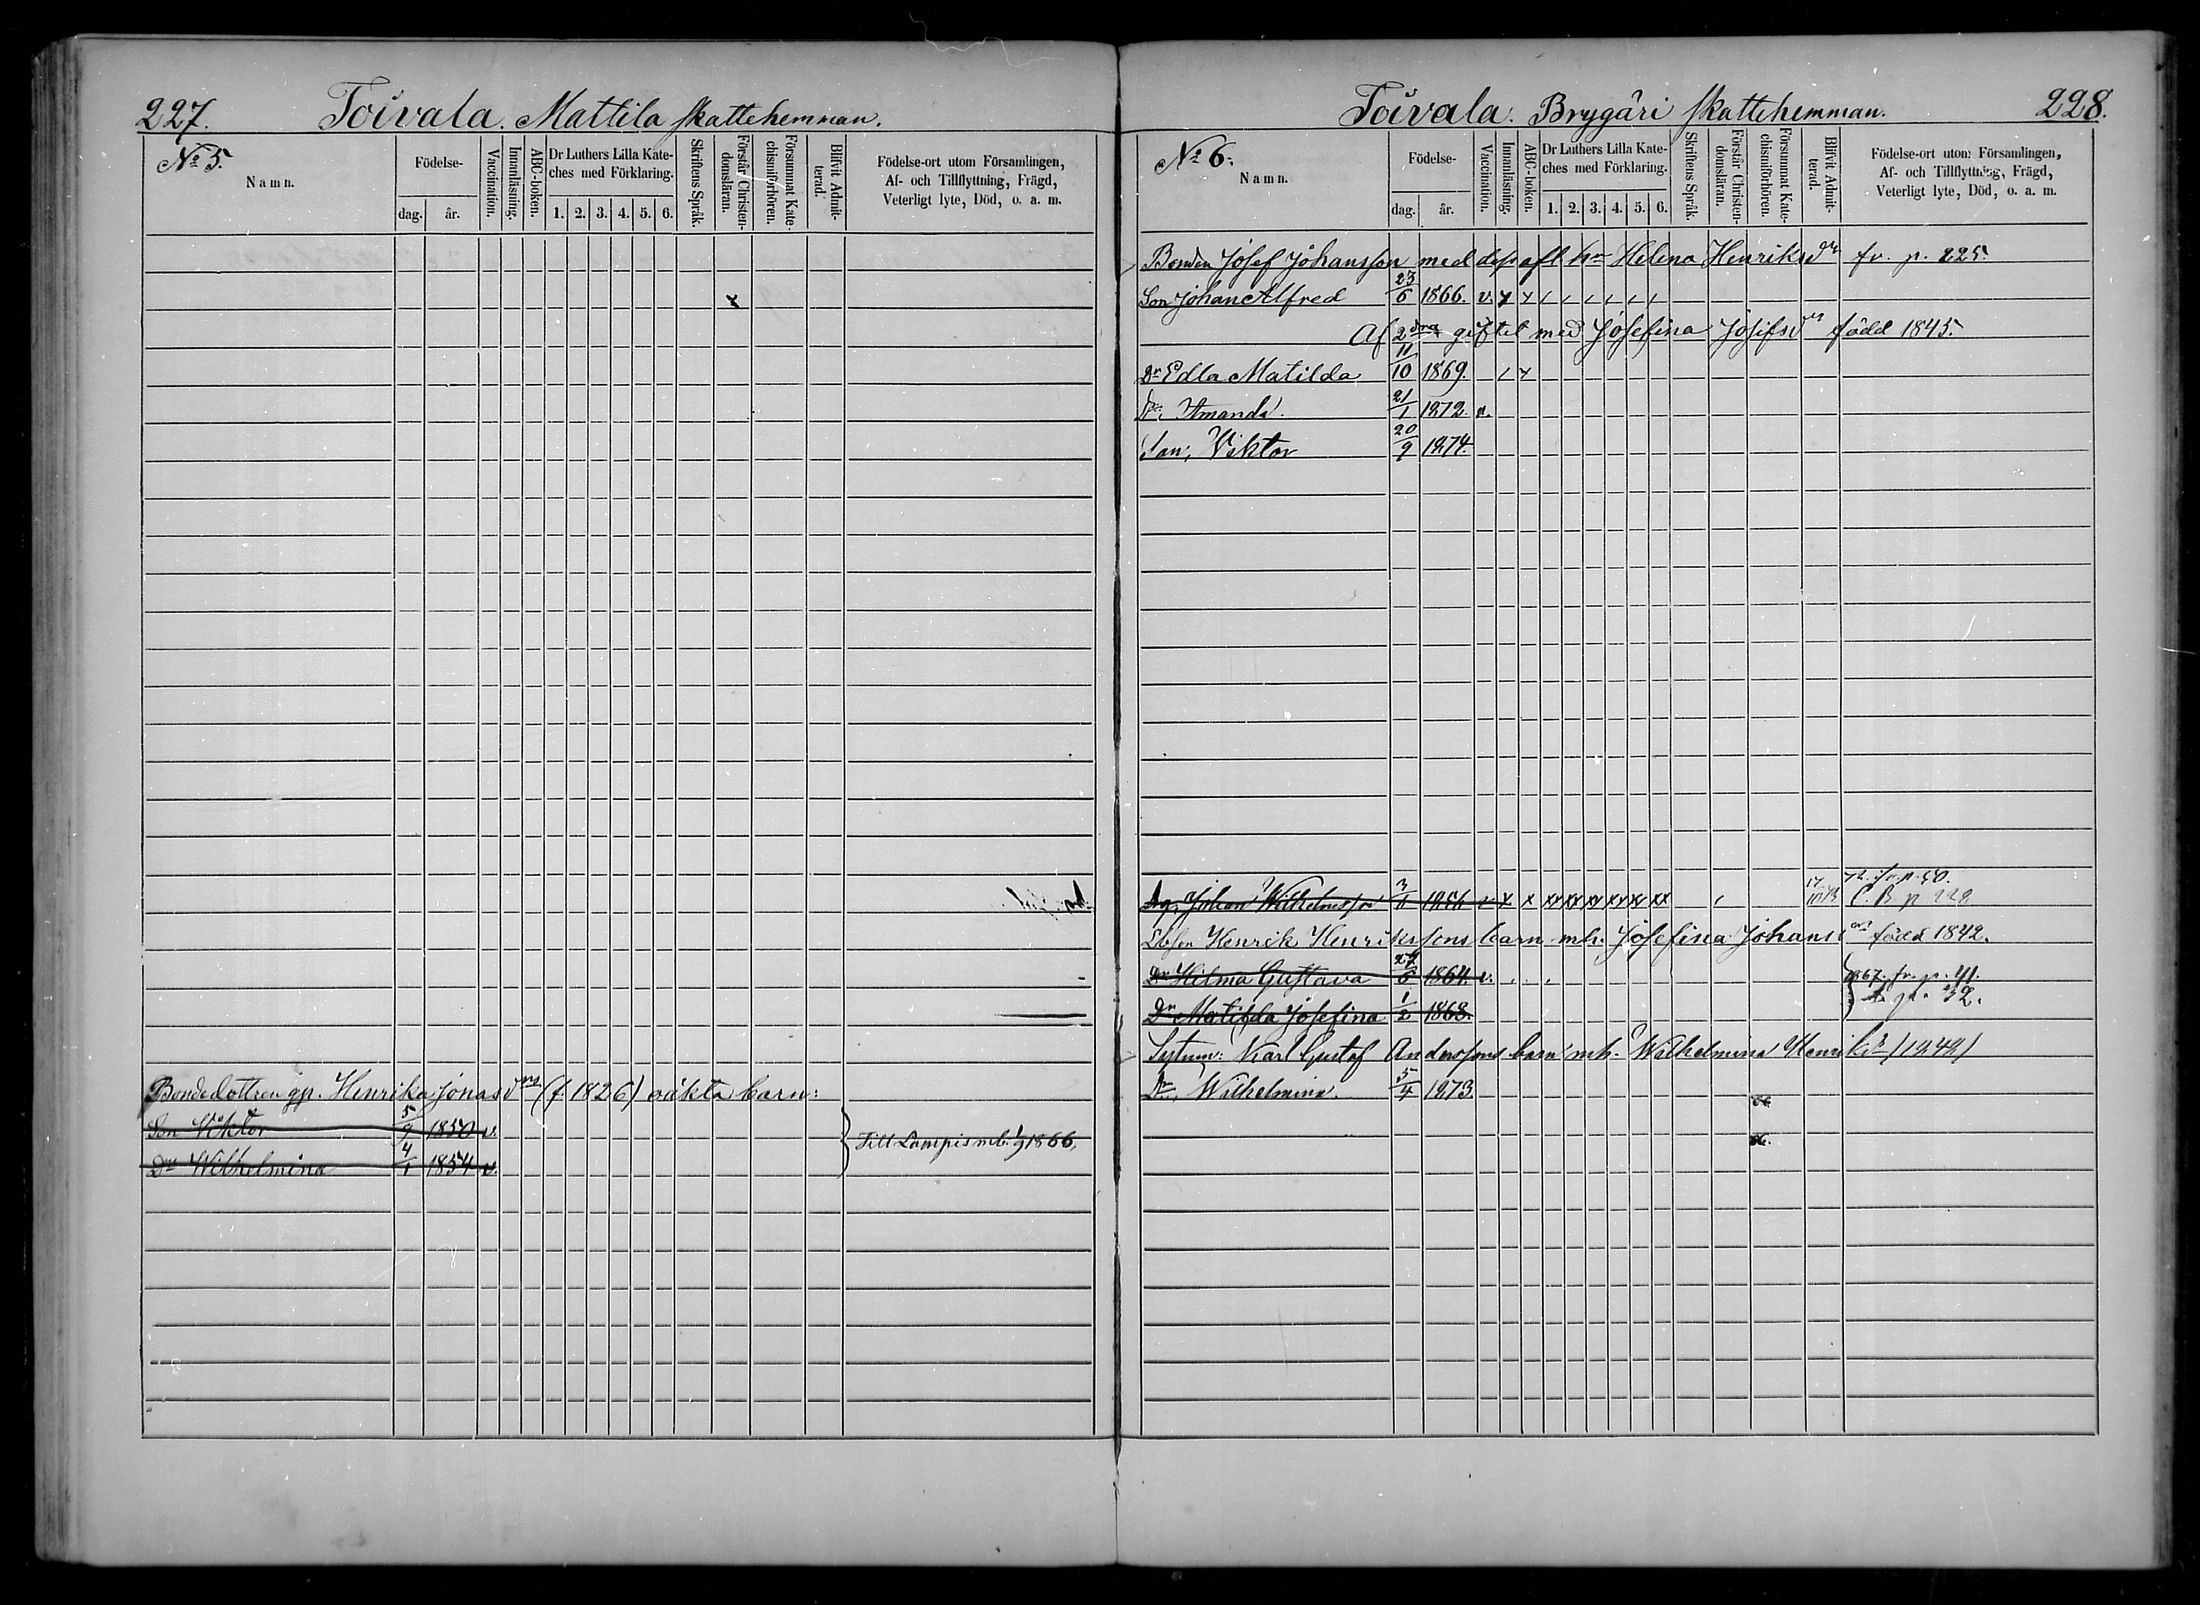 227. Toivala. Mattila skattehemman.
No 5.
Namn.
Födelse-
dag. år.
Vaccination.
Innanläsning.
ABC-boken.
Dr Luthers Lilla Kate-
ches med Förklaring.
1. 2. 3. 4. 5. 6.
Skriftens Språk.
Förstår Christen-
domsläran.
Försummat Kate-
chismiförhören.
Blifvit Admit-
terad.
Födelse-ort utom Församlingen,
Af- och Tillflyttning, Frägd,
Veterligt lyte, Död, o. a. m.
Bondedottren gp. Henrika Jonasdr (f. 1826) oäkta barn:
Son Viktor 5/9 1850 v.
Dr Wilhelmina 4/1 1854 v.
Till Lampis mb. 1/9 1866.
Toivala. Brygäri skattehemman. 228.
No 6.
Namn.
Födelse-
dag. år.
Vaccination.
Innanläsning.
ABC-boken.
Dr Luthers Lilla Kate-
ches med Förklaring.
1. 2. 3. 4. 5. 6.
Skriftens Språk.
Förstår Christen-
domsläran.
Försummat Kate-
chismiförhören.
Blifvit Admit-
terad.
Födelse-ort utom Församlingen,
Af- och Tillflyttning, Frägd,
Veterligt lyte, Död, o. a. m.
Bonden Josef Johansson med dess afl. h. Helena Henriksdr fr. p. 225
Son Johan Alfred 23/6 1866. v.
Af 2dra giftet med Josefina Josifsdr född 1845.
Dr Edla Matilda 11/10 1869.
Dr. Amanda. 21/1 1872. v.
Son, Viktor 20/9 1874.
Johan Wilhelmsson 3/6 1856 v x x xx xx xx xx xx xx 72. fr. p. 50.
C. B. p. 228
Henrik Henrikssons barn mh. Josefina Johansdr född 1842.
Dr Hilma Gustava 27/6 1864. v. 1867. fr. p. 41.
Dr Matilda Josefina 1/2 1868. t. p. 32.
Karl Gustaf Anderssons barn mh. Wilhelmina Henriksdr (1842)
Dr. Wilhelmina. 5/4 1873.